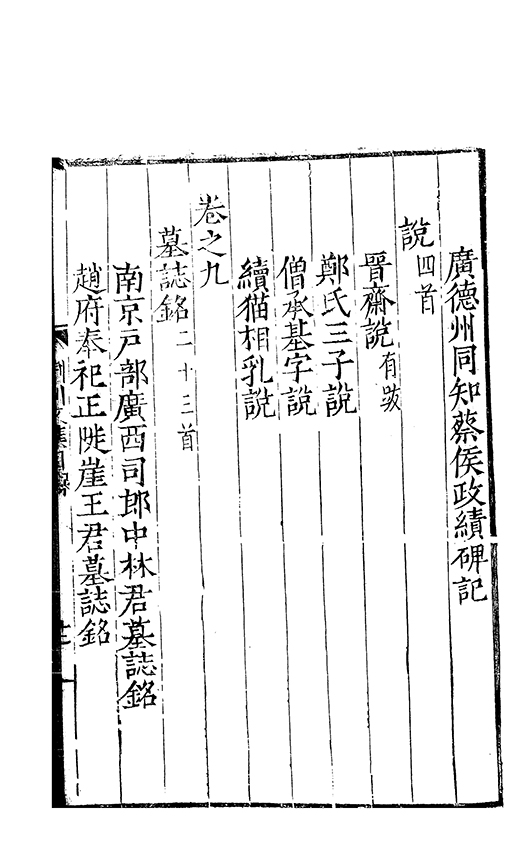 廣德州同知蔡侯政績碑記
說四首
晉齋說有跋
鄭氏三子說
僧承基字說
續猫相乳說
卷之九
墓誌銘二十三首
南京戶部廣西司郎中林君墓誌銘
趙府奉祀正陡崖王君墓誌銘